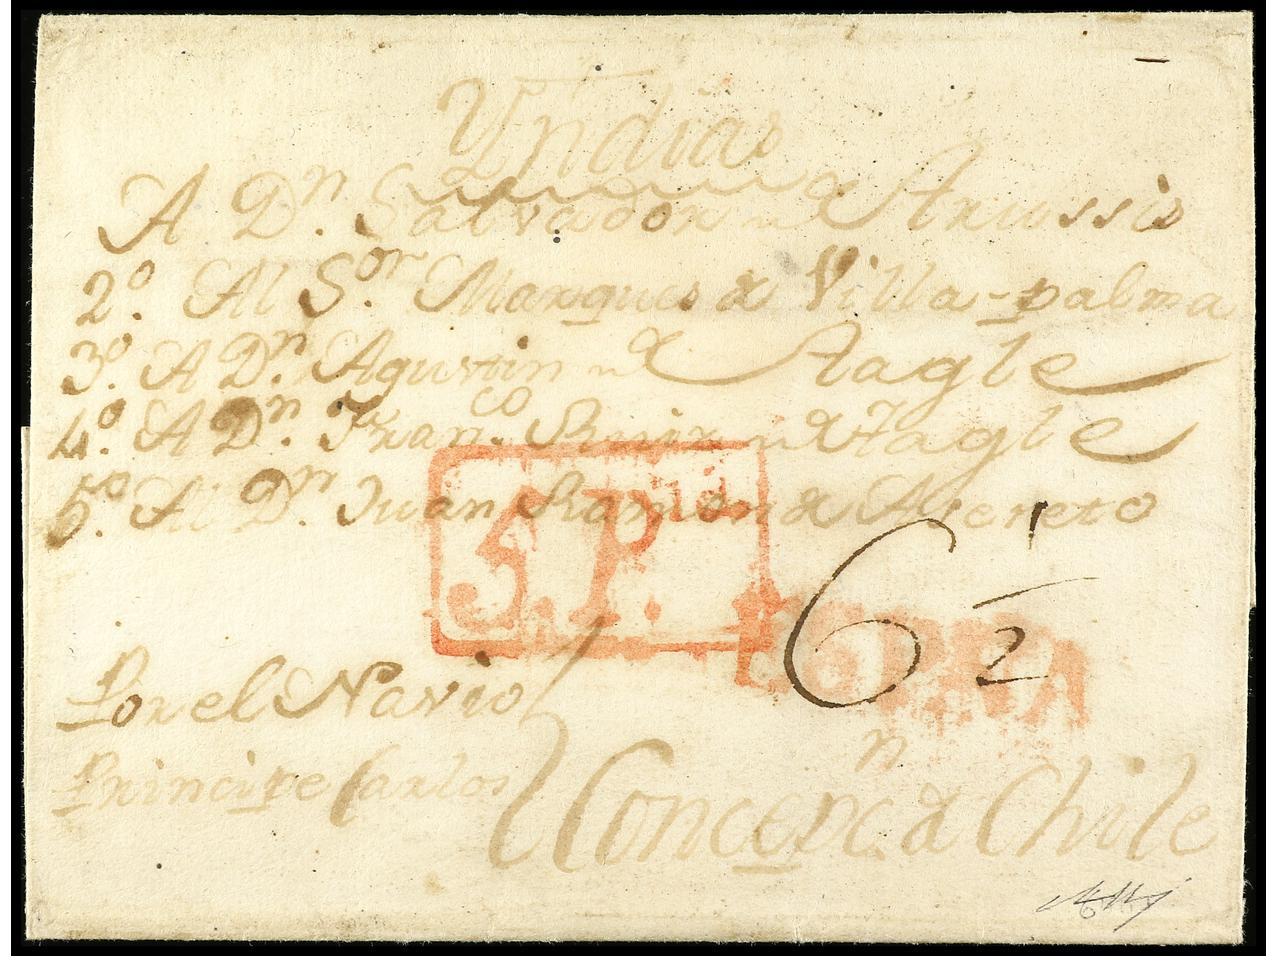 Yndias
A Dn. Salvador d Arussio
2º. Al S.or Marques d Villa-palma
3º. A Dn. Agustin d Tagle
4º. A Dn. Fran.co Ruiz d Tagle
5º. Al Dn. Juan Ramon d Atereto
5. Pid.
6 1/2
Por el Navio
Principe Carlos
Concepcn. d Chile